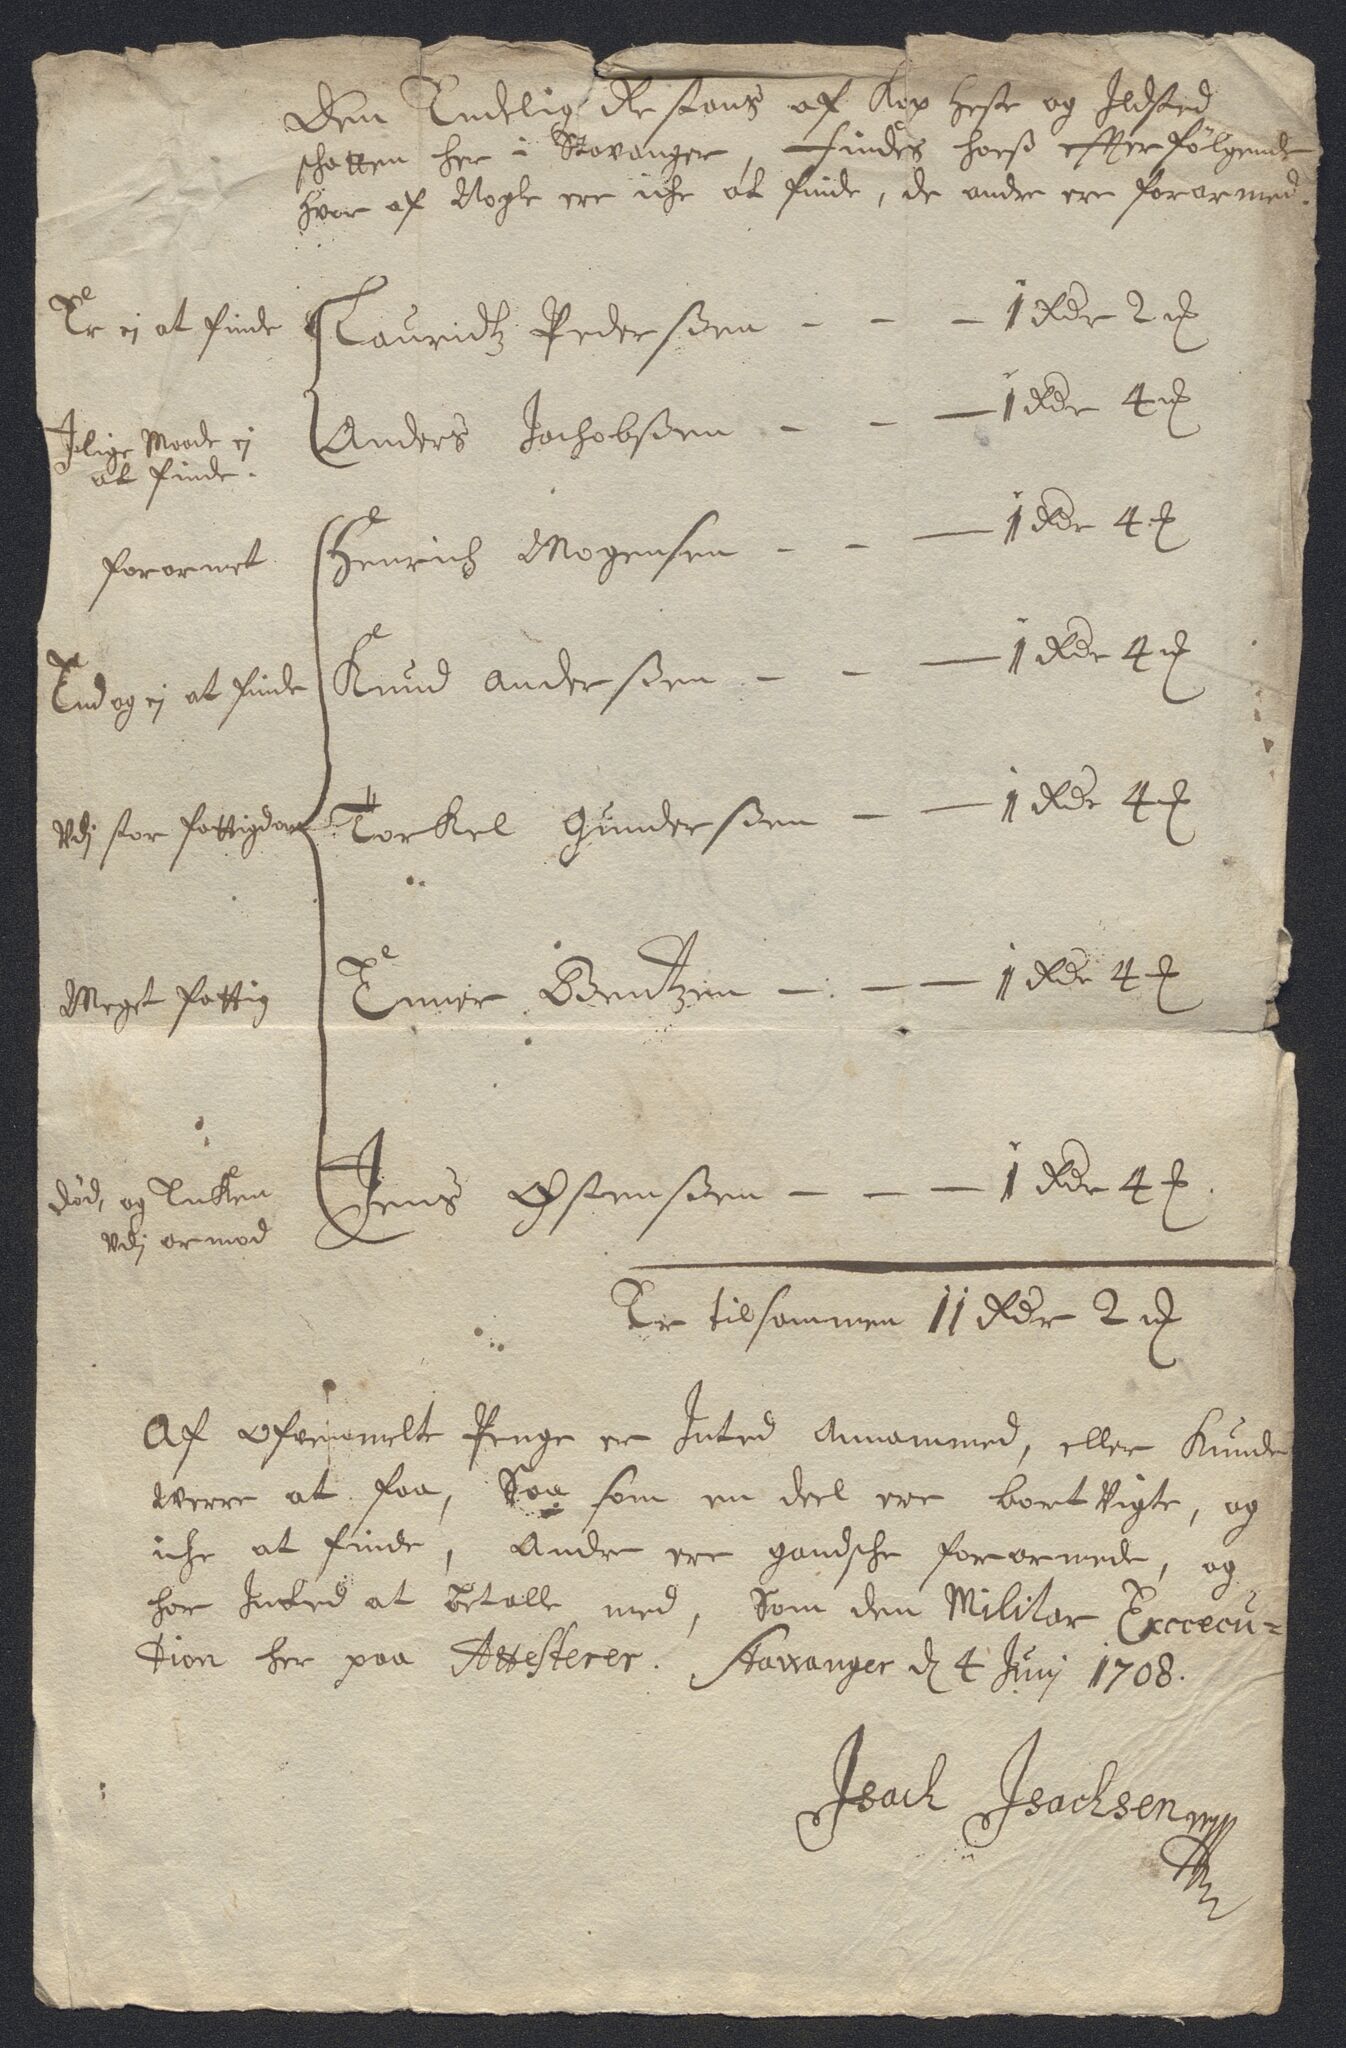 Den Endelig Restans af Kop Heste og Ildsted
schatten her i Stavanger, findes hoeß efterfölgende
hvor af Nogle ere iche at finde, de andre ere forarmed.
Er ej at finde Lauridtz Pederßen - - - 1 Rdr 2 ß
Jlige Maade ej
at finde. Anders Jachobßen - - - 1 Rdr 4 ß
forarmet Henrich Mogensen - - - 1 Rdr 4 ß
End og ej at finde Knud Anderßen - - - 1 Rdr 4 ß
Vdj stor fattigdom Torkel Gunderßen - - 1 Rdr 4 ß
Meget fattig Enner Bentzen - - - 1 Rdr 4 ß
Död, og Enken
vdj armod Jens Østenßen - - - 1 Rdr 4 ß.
Er tilsammen 11 Rdr 2 ß
Af ofvenmelte Penge er Inted Annammed, eller Kunde
were at faa, Saa som en deel ere bort vigte, og
iche at finde, Andre ere gandsche forarmede, og
har Inted at betalle med, Som den Militar Excecu-
tion her paa Attesterer. Stavanger d 4 Junj 1708.
Isach Isachsen